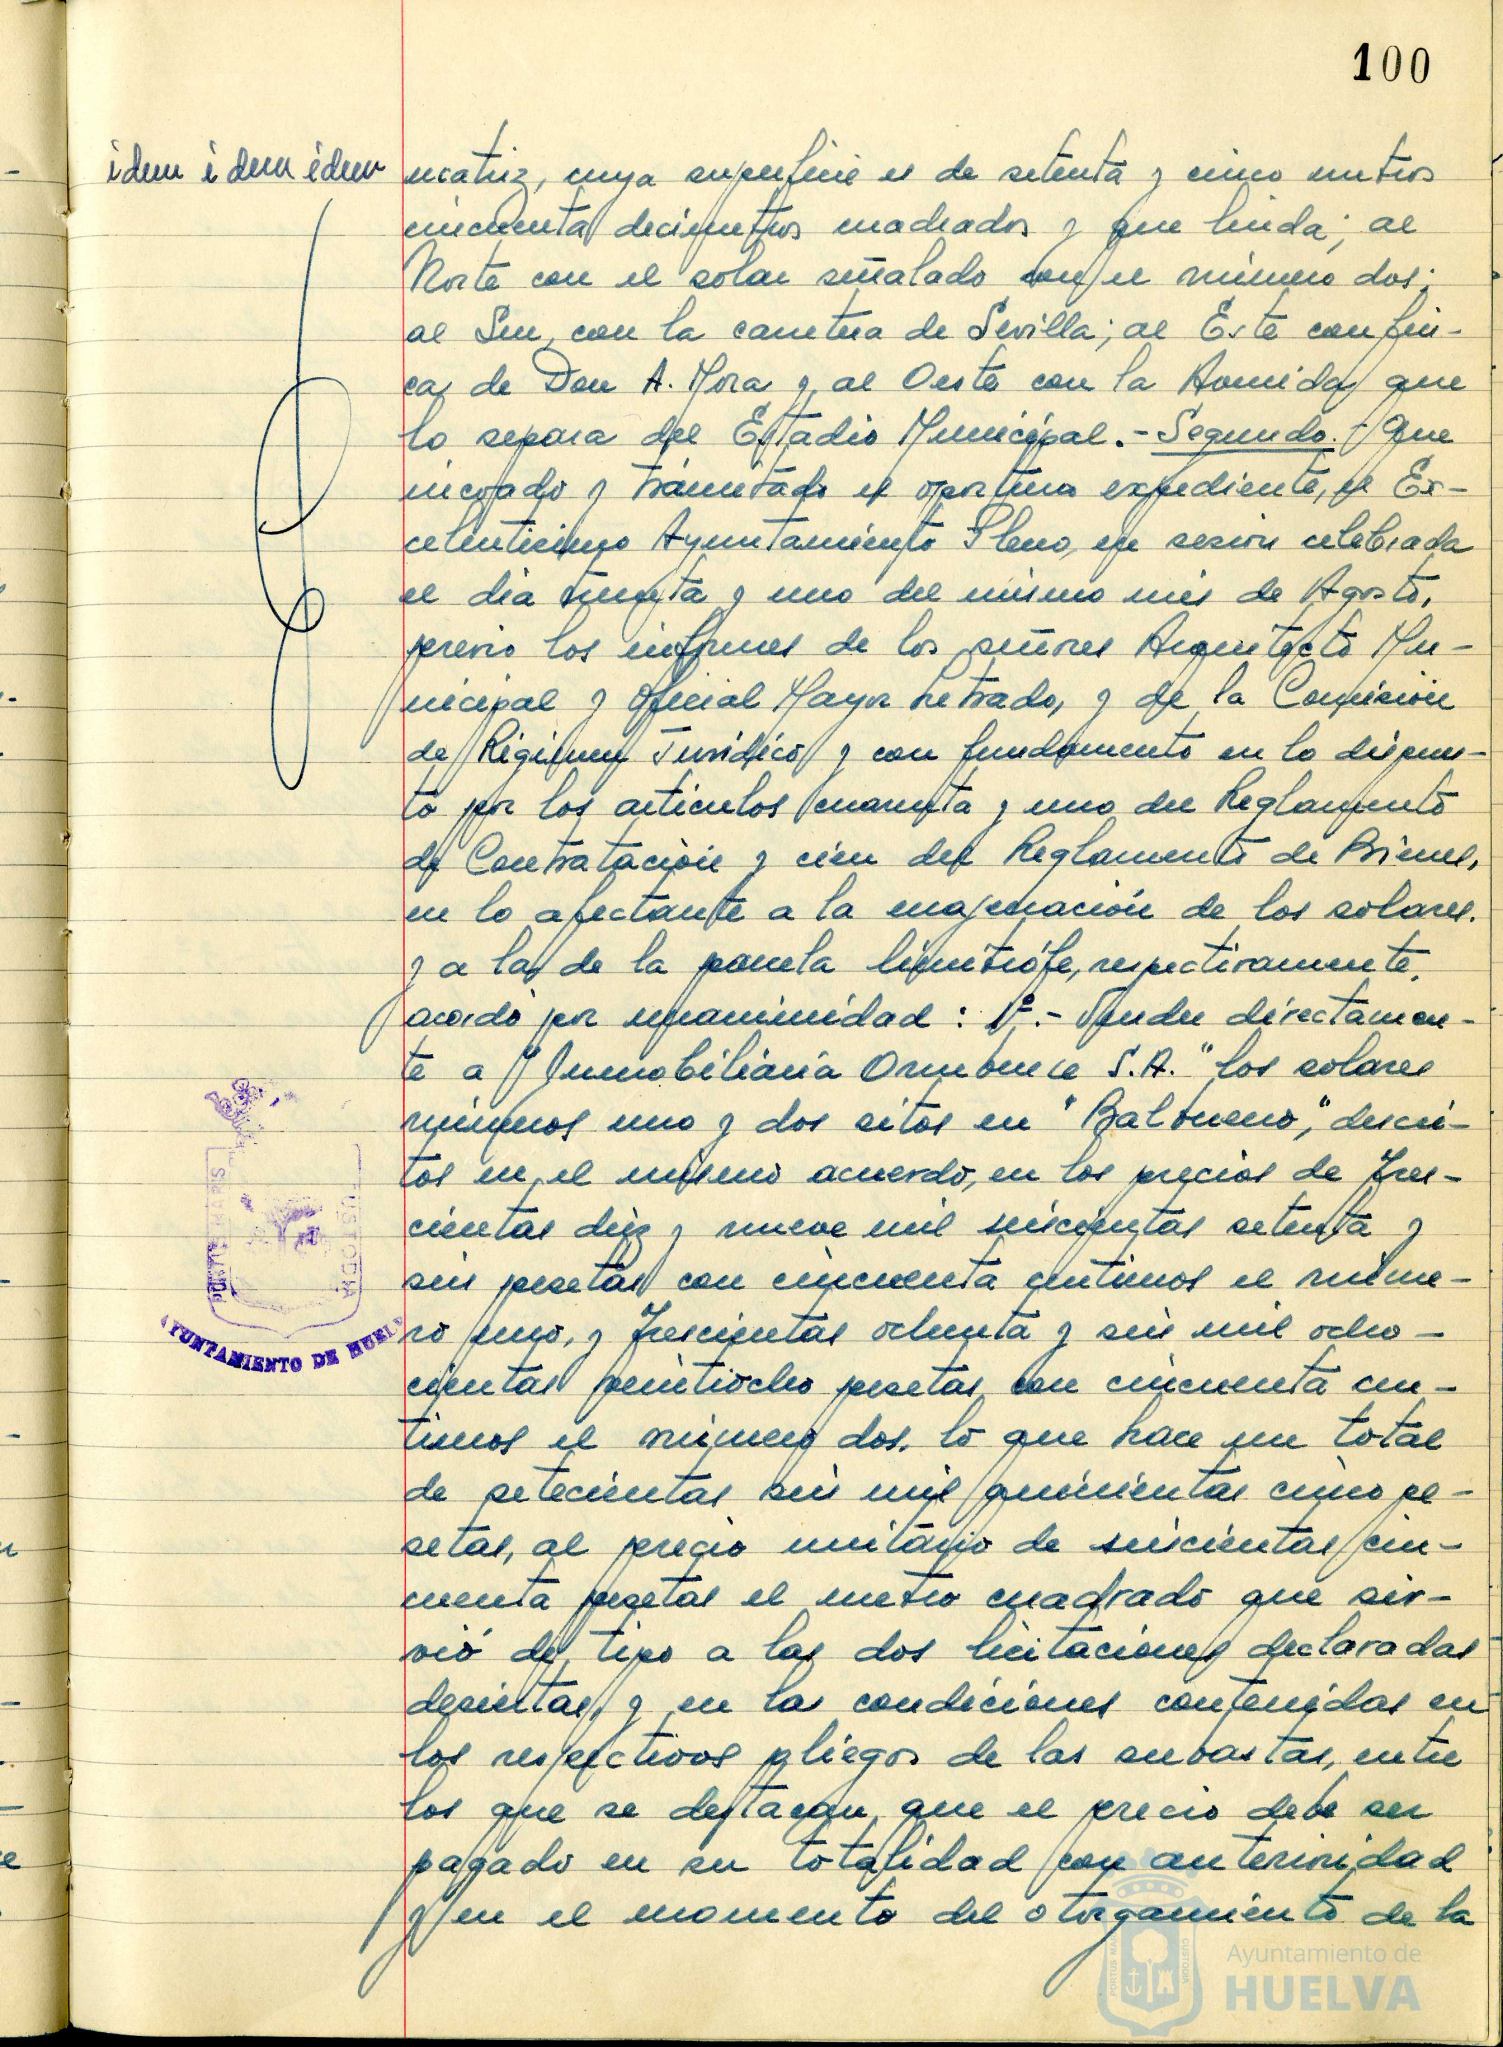 100
idem idem idem
matriz, cuya superficie es de setenta y cinco metros
cincuenta decímetros cuadrados y que linda; al
Norte con el solar señalado con el número dos;
al Sur, con la carretera de Sevilla; al Este con fin-
ca de Don A. Mora y al Oeste con la Avenida que
lo separa del Estadio Municipal.- Segundo.- Que
incoado y tramitado el oportuno expediente, el Ex-
celentísimo Ayuntamiento Pleno, en sesión celebrada
el día treinta y uno del mismo mes de Agosto,
previo los informes de los señores Arquitecto Mu-
nicipal y Oficial Mayor Letrado, y de la Comisión
de Régimen Jurídico y con fundamento en lo dispues-
to por los artículos cuarenta y uno del Reglamento
de Contratación y cien del Reglamento de Bienes,
en lo afectante a la enajenación de los solares
y a la de la parcela limítrofe, respectivamente,
acordó por unanimidad: 1º.- Vender directamen-
te a "Inmobiliaria Onubense S.A." los solares
números uno y dos sitos en "Balbueno", descri-
tos en el mismo acuerdo, en los precios de tres-
cientas diez y nueve mil seiscientas setenta y
seis pesetas con cincuenta céntimos el núme-
ro uno, y trescientas ochenta y seis mil ocho-
cientas veintiocho pesetas con cincuenta cén-
timos el número dos, lo que hace un total
de setecientas seis mil quinientas cinco pe-
setas, al precio unitario de seiscientas cin-
cuenta pesetas el metro cuadrado que sir-
vió de tipo a las dos licitaciones declaradas
desiertas, y en las condiciones contenidas en
los respectivos pliegos de las subastas, entre
los que se destacan que el precio debe ser
pagado en su totalidad con anterioridad
y en el momento del otorgamiento de la
PORTUS MARIS
CUSTODIA
AYUNTAMIENTO DE HUELV
Ayuntamiento de
HUELVA